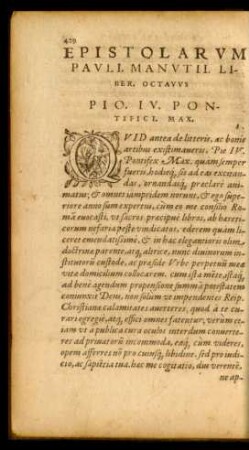 429
EPISTOLARVM
PAVLI. MANVTII. LI-
BER. OCTAVVS
PIO. IV. PON-
TIFICI. MAX.
QVID antea de literis, ac bonis
artibus existimaueris. Pie IV.
Pontifex Max. quam semper
fueris, hodieq; sis ad eas excitan-
das, ornandasq; præclari ani-
matus; & omnes iampridem norunt, & ego superi-
ore anno sum expertus, cùm ex me consilio Ro-
mã euocasti, vt sacros præcipuè libros, ab hæreti-
corum nefaria peste vindicatos, ederem quàm li-
ceret emendatissimè, & in hac elegantiarũ olim,
doctrinæ parente, atq; altrice, nunc diuinorum in-
stitutorũ custode, ac præside Vrbe perpetuũ meæ
vitæ domicilium collocarem. cum ista mẽte, istaq;
ad bene agendum propensione summã potestatem
coniunxit Deus, non solùm vt impendentes Reip.
Christianæ calamitates auerteres, quod à te cu-
rari egregiè, atq; effici omnes fatentur, verùm et-
iam vt à publica cura oculos interdum conuerte-
res ad priuatorũ incommoda, eaq; cùm videres,
opem afferres nõ pro cuiusq; libidine, sed pro indi-
cio, ac sapiẽtia tua. hæc me cogitatio, diu verentẽ,
ne ap-